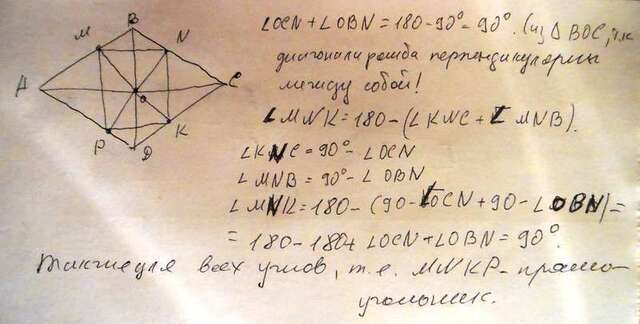 B
M N
A O C
P K
D
∠OCN + ∠OBN = 180 - 90° = 90°. (из △BOC, т.к.
диагонали ромба перпендикулярны
между собой!
∠MNK = 180 - (∠KNC + ∠MNB).
∠KNC = 90° - ∠OCN
∠MNB = 90° - ∠OBN
∠MNK = 180 - (90 - ∠OCN + 90 - ∠OBN) =
= 180 - 180 + ∠OCN + ∠OBN = 90°.
Также для всех углов, т.е. MNKP - прямо-
угольник.